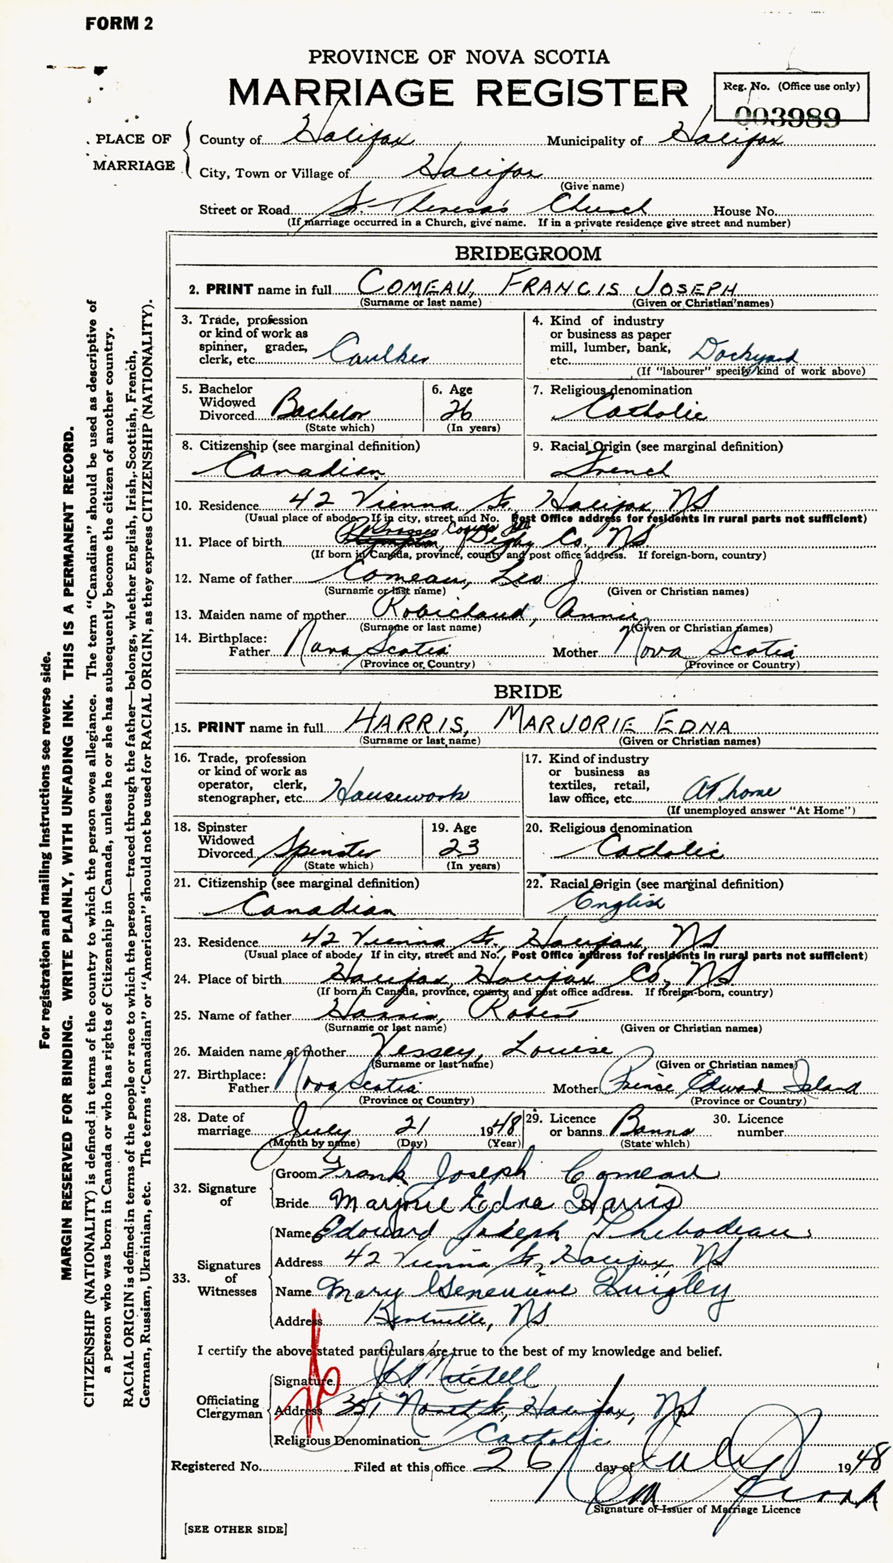 FORM 2
PROVINCE OF NOVA SCOTIA
MARRIAGE REGISTER
Reg. No. (Office use only)
003989
PLACE OF MARRIAGE
County of Halifax Municipality of Halifax
City, Town or Village of Halifax
(Give name)
Street or Road St. Theresa's Church House No.
(If marriage occurred in a Church, give name. If in a private residence give street and number)
BRIDEGROOM
2. PRINT name in full COMEAU, FRANCIS JOSEPH
(Surname or last name) (Given or Christian names)
3. Trade, profession or kind of work as spinner, grader, clerk, etc. Caulker
4. Kind of industry or business as paper mill, lumber, bank, etc. Dockyard
(If "labourer" specify kind of work above)
5. Bachelor Widowed Divorced Bachelor
(State which)
6. Age 26
(In years)
7. Religious denomination Catholic
8. Citizenship (see marginal definition) Canadian
9. Racial Origin (see marginal definition) French
10. Residence 42 Vienna St. Halifax, NS
(Usual place of abode. If in city, street and No. Post Office address for residents in rural parts not sufficient)
11. Place of birth Digby Co., NS
(If born in Canada, province, county and post office address. If foreign-born, country)
12. Name of father Comeau, Leo J
(Surname or last name) (Given or Christian names)
13. Maiden name of mother Robichaud, Annie
(Surname or last name) (Given or Christian names)
14. Birthplace:
Father Nova Scotia Mother Nova Scotia
(Province or Country) (Province or Country)
BRIDE
15. PRINT name in full HARRIS, MARJORIE EDNA
(Surname or last name) (Given or Christian names)
16. Trade, profession or kind of work as operator, clerk, stenographer, etc. Housework
17. Kind of industry or business as textiles, retail, law office, etc. At home
(If unemployed answer "At Home")
18. Spinster Widowed Divorced Spinster
(State which)
19. Age 23
(In years)
20. Religious denomination Catholic
21. Citizenship (see marginal definition) Canadian
22. Racial Origin (see marginal definition) English
23. Residence 42 Vienna St., Halifax, NS
(Usual place of abode, If in city, street and No. Post Office address for residents in rural parts not sufficient)
24. Place of birth Halifax, Halifax Co, NS
(If born in Canada, province, county and post office address. If foreign-born, country)
25. Name of father Harris, Robert
(Surname or last name) (Given or Christian names)
26. Maiden name of mother Vessey, Louise
(Surname or last name) (Given or Christian names)
27. Birthplace:
Father Nova Scotia Mother Prince Edward Island
(Province or Country) (Province or Country)
28. Date of marriage July 21 1948
(Month by name) (Day) (Year)
29. Licence or banns Banns
(State which)
30. Licence number
32. Signature of
Groom Frank Joseph Comeau
Bride Marjorie Edna Harris
33. Signatures of Witnesses
Name Edouard Joseph Thibodeau
Address 42 Vienna St, Halifax, NS
Name Mary Genevieve Quigley
Address Kentville, NS
I certify the above stated particulars are true to the best of my knowledge and belief.
Officiating Clergyman
Signature Mitchell
Address 351 North St, Halifax, NS
Religious Denomination Catholic
Registered No. Filed at this office 26 day of July 1948
Signature of Issuer of Marriage Licence
[SEE OTHER SIDE]
For registration and mailing instructions see reverse side.
MARGIN RESERVED FOR BINDING. WRITE PLAINLY, WITH UNFADING INK. THIS IS A PERMANENT RECORD.
CITIZENSHIP (NATIONALITY) is defined in terms of the country to which the person owes allegiance. The term "Canadian" should be used as descriptive of
a person who was born in Canada or who has rights of Citizenship in Canada, unless he or she has subsequently become the citizen of another country.
RACIAL ORIGIN is defined in terms of the people or race to which the person—traced through the father—belongs, whether English, Irish, Scottish, French,
German, Russian, Ukrainian, etc. The terms "Canadian" or "American" should not be used for RACIAL ORIGIN, as they express CITIZENSHIP (NATIONALITY).